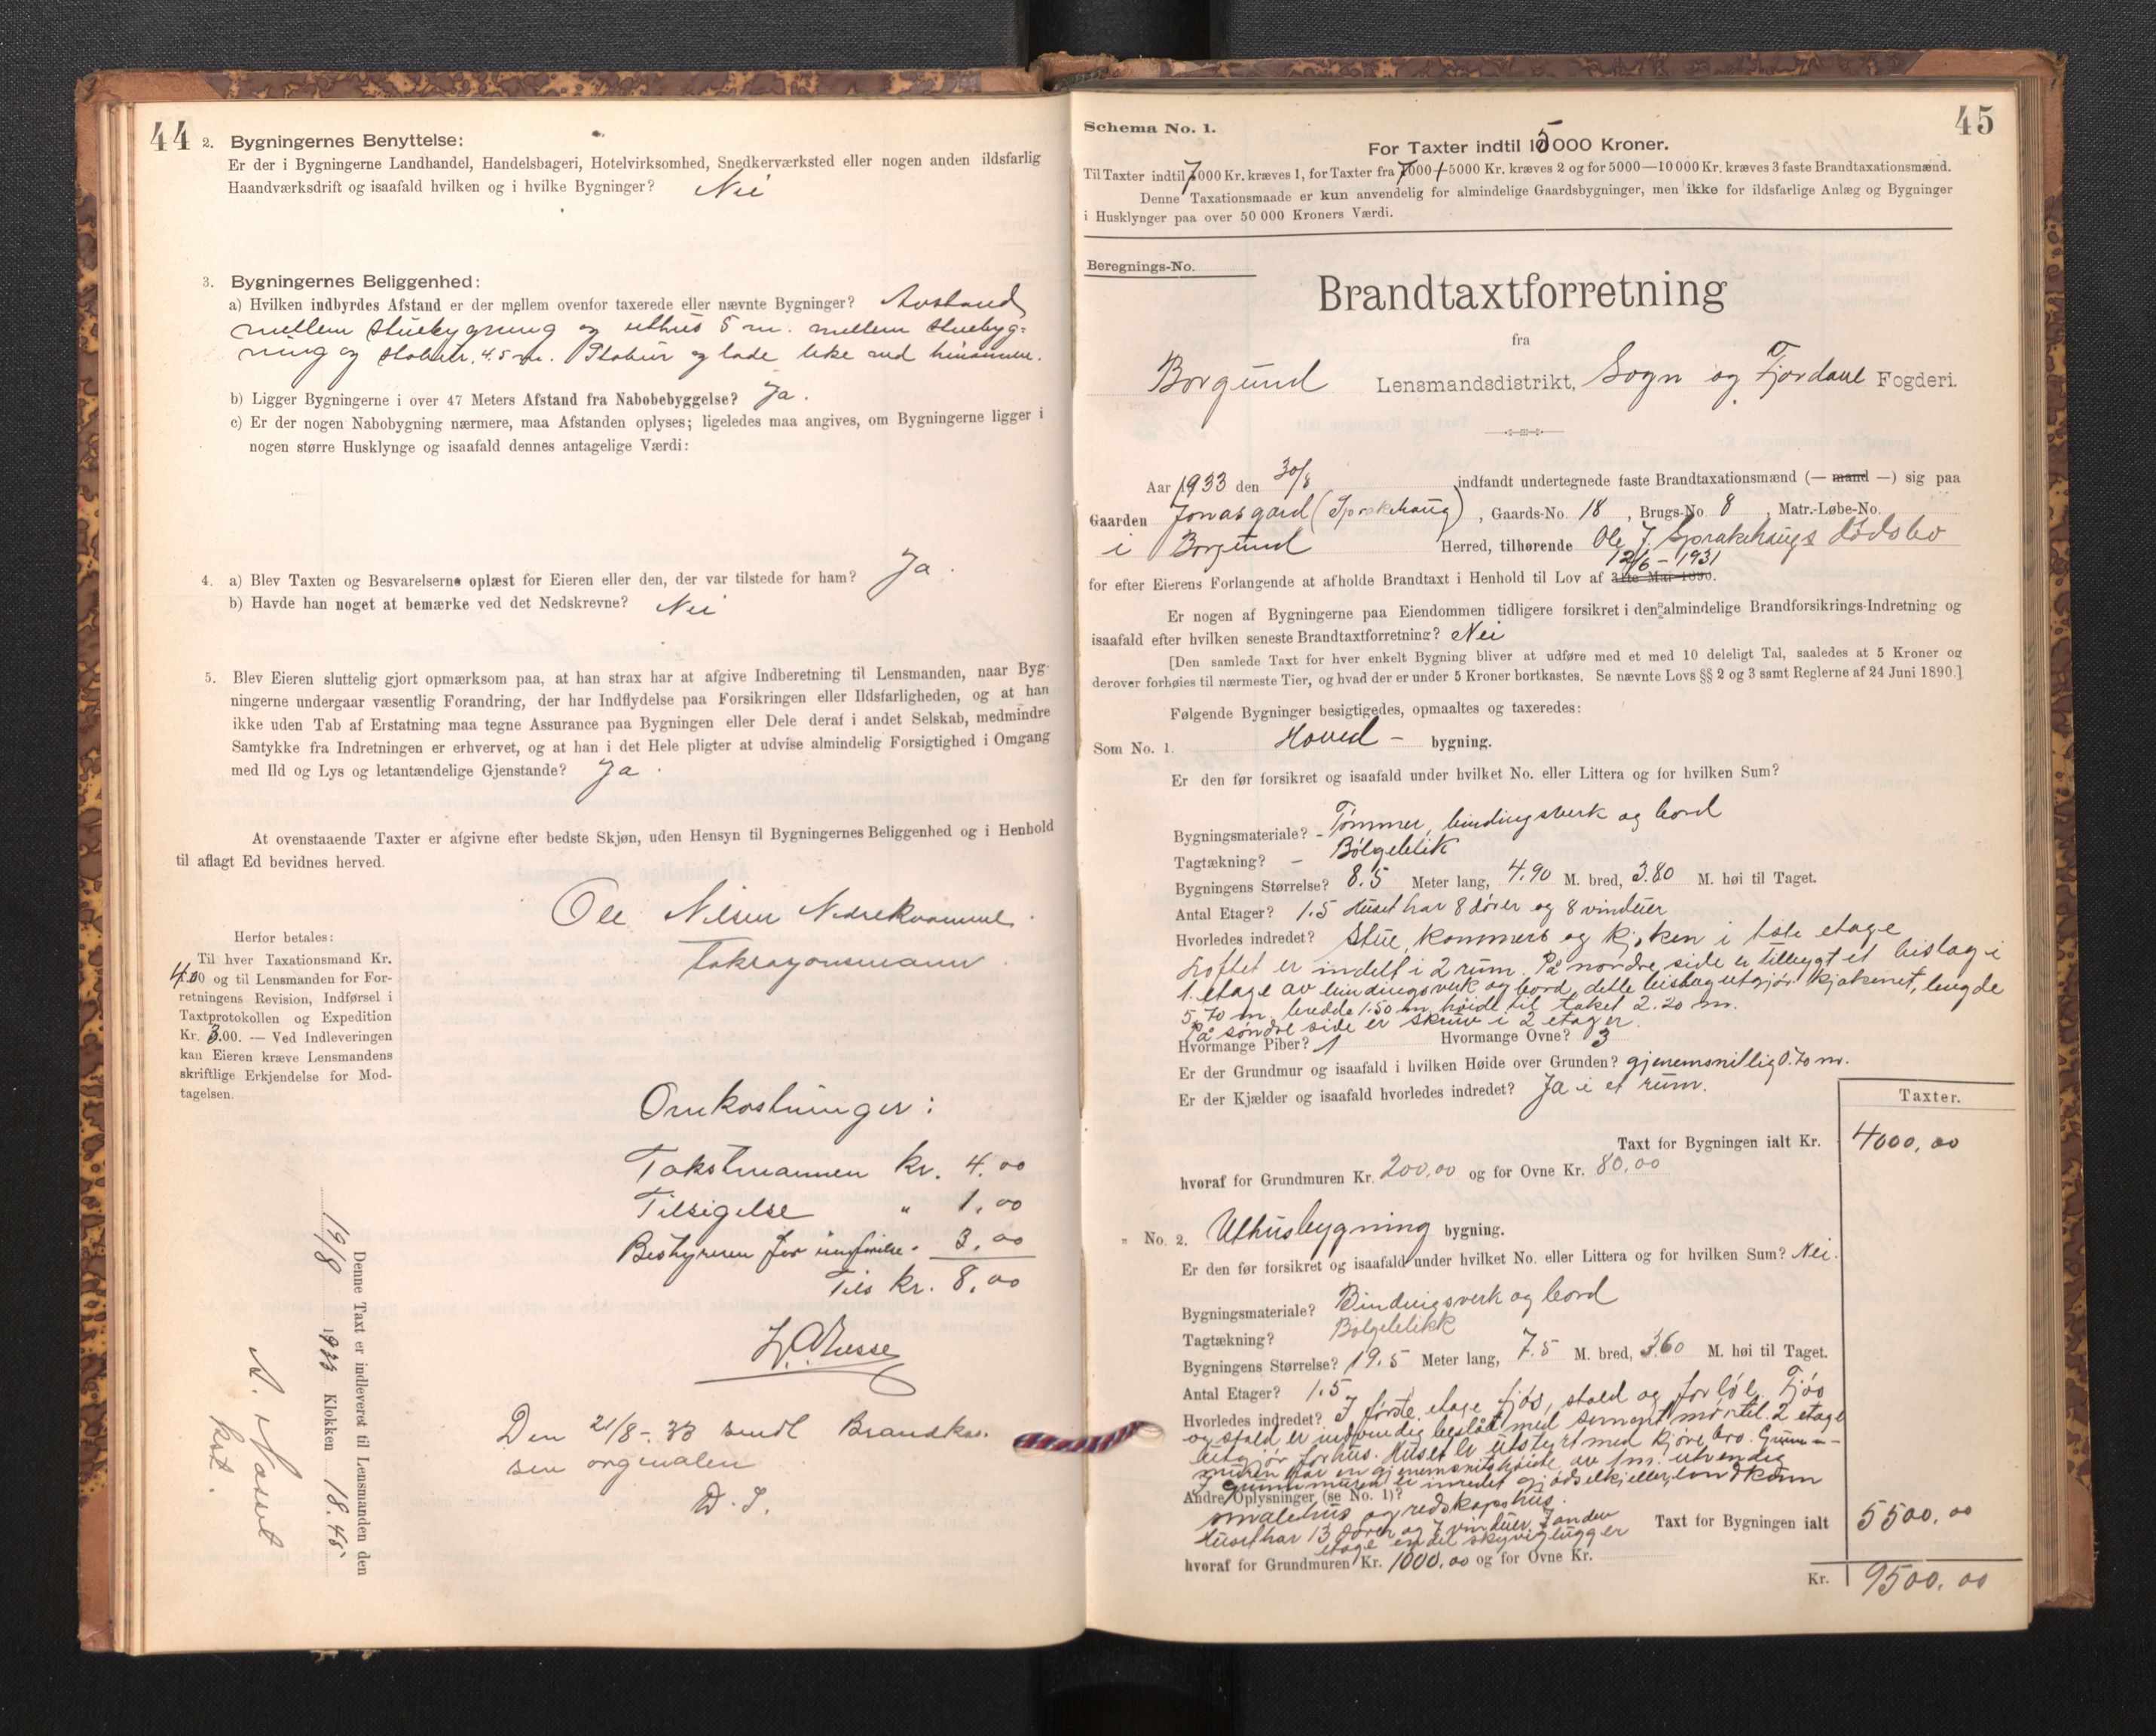 44
2. Bygningernes Benyttelse:
Er der i Bygningerne Landhandel, Handelsbageri, Hotelvirksomhed, Snedkerværksted eller nogen anden ildsfarlig
Haandværksdrift og isaafald hvilken og i hvilke Bygninger? Nei
3. Bygningernes Beliggenhed:
a) Hvilken indbyrdes Afstand er der mellem ovenfor taxerede eller nævnte Bygninger? Avstand
mellem stuebygning og uthus 5 m. mellem stuebyg-
ning og stabur 4.5 m. Stabur og lade like ved hinannen.
b) Ligger Bygningerne i over 47 Meters Afstand fra Nabobebyggelse? Ja.
c) Er der nogen Nabobygning nærmere, maa Afstanden oplyses; ligeledes maa angives, om Bygningerne ligger i
nogen større Husklynge og isaafald dennes antagelige Værdi:
4. a) Blev Taxten og Besvarelserne oplæst for Eieren eller den, der var tilstede for ham? Ja.
b) Havde han noget at bemærke ved det Nedskrevne? Nei
5. Blev Eieren sluttelig gjort opmærksom paa, at han strax har at afgive Indberetning til Lensmanden, naar Byg-
ningerne undergaar væsentlig Forandring, der har Indflydelse paa Forsikringen eller Ildsfarligheden, og at han
ikke uden Tab af Erstatning maa tegne Assurance paa Bygningen eller Dele deraf i andet Selskab, medmindre
Samtykke fra Indretningen er erhvervet, og at han i det Hele pligter at udvise almindelig Forsigtighed i Omgang
med Ild og Lys og letantændelige Gjenstande? Ja.
At ovenstaaende Taxter er afgivne efter bedste Skjøn, uden Hensyn til Bygningernes Beliggenhed og i Henhold
til aflagt Ed bevidnes herved.
Ole Nilsen Nedrekvamme
Taksasjonsmann.
Herfor betales:
Til hver Taxationsmand Kr.
4.00 og til Lensmanden for For-
retningens Revision, Indførsel i
Taxtprotokollen og Expedition
Kr. 3.00. — Ved Indleveringen
kan Eieren kræve Lensmandens
skriftlige Erkjendelse for Mod-
tagelsen.
Omkostninger:
Takstmannen kr. 4.00
Tilsigelse " 1.00
Bestyreren for innførelse. 3.00
Tils kr. 8.00
Den 21/8-33 sendt Brandkas-
sen orginalen
Denne Taxt er indleveret til Lensmanden den
19/8 1933 Klokken 18.45
kst.
45
Schema No. 1.
For Taxter indtil 15000 Kroner.
Til Taxter indtil 7000 Kr. kræves 1, for Taxter fra 7000 + 5000 Kr. kræves 2 og for 5000—10000 Kr. kræves 3 faste Brandtaxationsmænd.
Denne Taxationsmaade er kun anvendelig for almindelige Gaardsbygninger, men ikke for ildsfarlige Anlæg og Bygninger
i Husklynger paa over 50 000 Kroners Værdi.
Beregnings-No.
Brandtaxtforretning
fra
Borgund Lensmandsdistrikt, Sogn og Fjordane Fogderi.
Aar 1933 den 30/8 indfandt undertegnede faste Brandtaxationsmænd (— mand —) sig paa
Gaarden Jonasgard (Sprakehaug), Gaards-No. 18, Brugs-No. 8, Matr.-Løbe-No.
i Borgund Herred, tilhørende Ole J. Sprakehaugs dødsbo
for efter Eierens Forlangende at afholde Brandtaxt i Henhold til Lov af 12/6-1931 31te Mai 1890.
Er nogen af Bygningerne paa Eiendommen tidligere forsikret i den almindelige Brandforsikrings-Indretning og
isaafald efter hvilken seneste Brandtaxtforretning? Nei
[Den samlede Taxt for hver enkelt Bygning bliver at udføre med et med 10 deleligt Tal, saaledes at 5 Kroner og
derover forhøies til nærmeste Tier, og hvad der er under 5 Kroner bortkastes. Se nævnte Lovs §§ 2 og 3 samt Reglerne af 24 Juni 1890.]
Følgende Bygninger besigtigedes, opmaaltes og taxeredes:
Som No. 1. Hoved - bygning.
Er den før forsikret og isaafald under hvilket No. eller Littera og for hvilken Sum?
Bygningsmateriale? - Tømmer, bindingsverk og bord
Tagtækning? - Bølgeblik
Bygningens Størrelse? 8.5 Meter lang, 4.90 M. bred, 3.80 M. høi til Taget.
Antal Etager? 1.5 Huset har 8 dører og 8 vinduer
Hvorledes indredet? Stue, kammers og kjøken i 1ste etage
Loftet er indelt i 2 rum. På nordre side er tilbygt et bislag i
1. etage av bindingsverk og bord, dette bislag utgjør kjøkenet, lengde
5.70 m, bredde 1.50 m, høide til taket 2.20 m.
På søndre side er skruv i 2 etager.
Hvormange Piber? 1 Hvormange Ovne? 3
Er der Grundmur og isaafald i hvilken Høide over Grunden? gjenemsnitlig 0.70 m.
Er der Kjælder og isaafald hvorledes indredet? Ja i et rum.
Taxter.
Taxt for Bygningen ialt Kr. 4000,00
hvoraf for Grundmuren Kr. 200,00 og for Ovne Kr. 80,00
" No. 2. Uthusbygning bygning.
Er den før forsikret og isaafald under hvilket No. eller Littera og for hvilken Sum? Nei.
Bygningsmateriale? Bindingsverk og bord
Tagtækning? Bølgeblikk
Bygningens Størrelse? 19.5 Meter lang, 7.5 M. bred, 3.60 M. høi til Taget.
Antal Etager? 1.5
Hvorledes indredet? I første etage fjøs, stald og forløe. Fjøs
og stald er indvendig beslåt med sement mørtel. 2 etage
utgjør forhus. Huset er utstyrt med kjørebro. Grunn-
muren har en gjenemsnitshøide av 1 m. utvendig
I grunnmuren er inredet gjødselkjeller,
Andre Oplysninger (se No. 1)?
smalehus og redskapshus.
Huset har 13 dører og 7 vinduer, I anden
etage en del skyvglugger
Taxt for Bygningen ialt 5500,00
hvoraf for Grundmuren Kr. 1000,00 og for Ovne Kr.
Kr. 9500,00